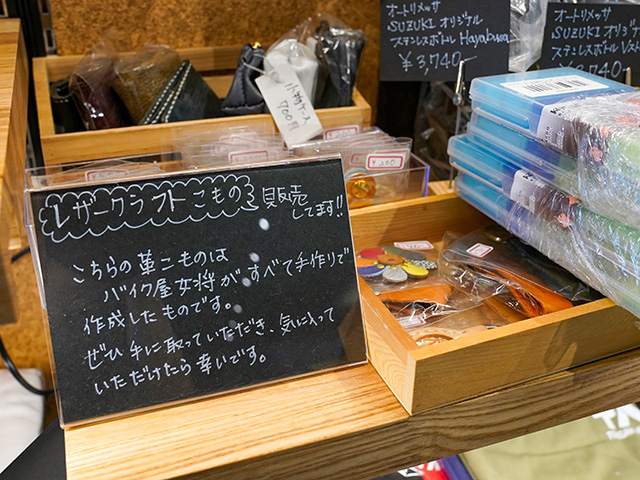 オートリメッサ
SUZUKI オリジナル
ステンレスボトル Hayabusa
¥3,740
オートリメッサ
SUZUKI オリジナル
ステンレスボトル
¥3,740
700円
レザークラフトこもの 販売
してます!!
こちらの革こものは
バイク屋女将がすべて手作りで
作成したものです。
ぜひ手に取っていただき、気に入って
いただけたら幸いです。